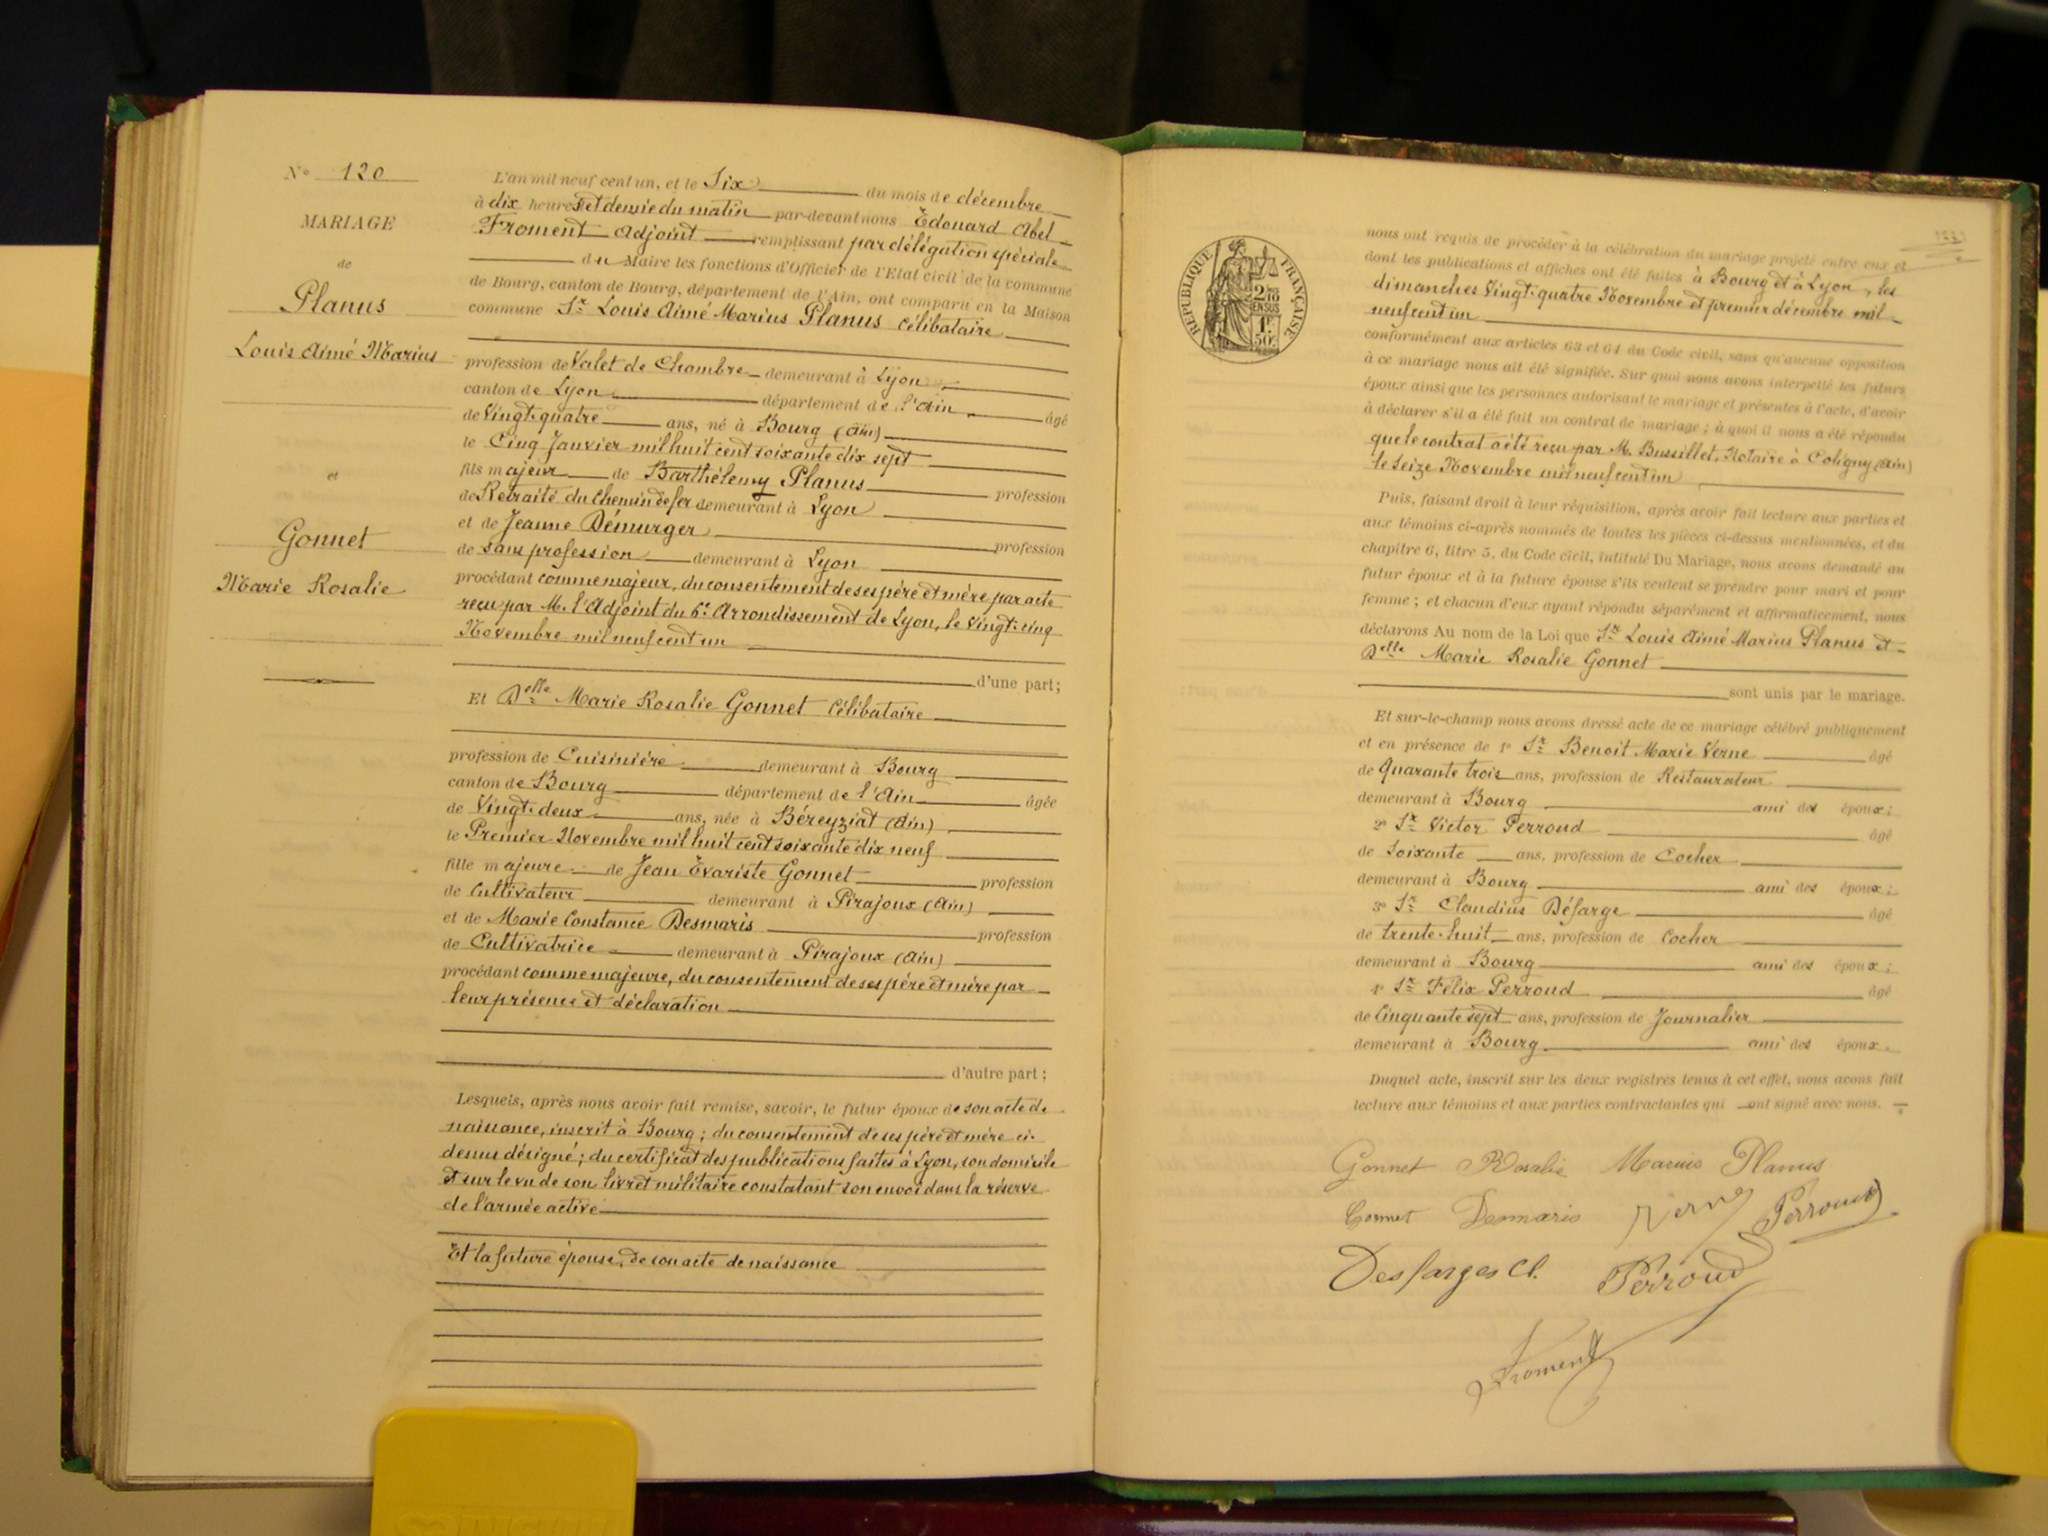 N° 120
MARIAGE
de
Planus
Louis Aimé Marius
et
Gonnet
Marie Rosalie
L'an mil neuf cent un, et le Six du mois de décembre
à dix heures et demie du matin par-devant nous Edouard Abel
Froment Adjoint remplissant par délégation spéciale
du Maire les fonctions d'Officier de l'Etat civil de la commune
de Bourg, canton de Bourg, département de l'Ain, ont comparu en la Maison
commune Sr Louis Aimé Marius Planus célibataire
profession de Valet de Chambre demeurant à Lyon
canton de Lyon département de l'Ain âgé
de Vingt-quatre ans, né à Bourg (Ain)
le Cinq Janvier mil huit cent soixante dix sept
fils majeur de Barthélemy Planus profession
de Retraité du Chemin de fer demeurant à Lyon
et de Jeanne Démurger profession
de sans profession demeurant à Lyon
procédant comme majeur, du consentement de ses père et mère par acte
reçu par M. l'Adjoint du 6e Arrondissement de Lyon, le vingt-cinq
Novembre mil neuf cent un
d'une part;
Et Delle Marie Rosalie Gonnet célibataire
profession de Cuisinière demeurant à Bourg
canton de Bourg département de l'Ain âgée
de Vingt-deux ans, née à Béreyziat (Ain)
le Premier Novembre mil huit cent soixante dix neuf
fille majeure de Jean Evariste Gonnet profession
de Cultivateur demeurant à Pirajoux (Ain)
et de Marie Constance Desmaris profession
de Cultivatrice demeurant à Pirajoux (Ain)
procédant comme majeure, du consentement de ses père et mère par
leur présence et déclaration
d'autre part;
Lesquels, après nous avoir fait remise, savoir, le futur époux de son acte de
naissance, inscrit à Bourg; du consentement de ses père et mère ci-
dessus désigné; du certificat des publications faites à Lyon, son domicile
et sur le vu de son livret militaire constatant son envoi dans la réserve
de l'armée active
Et la future épouse, de son acte de naissance
RÉPUBLIQUE FRANÇAISE
2/10 EN SUS
1F 50c
nous ont requis de procéder à la célébration du mariage projeté entre eux et
dont les publications et affiches ont été faites à Bourg et à Lyon, les
dimanches Vingt-quatre Novembre et premier décembre mil
neuf cent un
conformément aux articles 63 et 64 du Code civil, sans qu'aucune opposition
à ce mariage nous ait été signifiée. Sur quoi nous avons interpellé les futurs
époux ainsi que les personnes autorisant le mariage et présentes à l'acte, d'avoir
à déclarer s'il a été fait un contrat de mariage; à quoi il nous a été répondu
que le contrat a été reçu par M. Bussillet, Notaire à Coligny (Ain)
le seize Novembre mil neuf cent un
Puis, faisant droit à leur réquisition, après avoir fait lecture aux parties et
aux témoins ci-après nommés de toutes les pièces ci-dessus mentionnées, et du
chapitre 6, titre 5, du Code civil, intitulé Du Mariage, nous avons demandé au
futur époux et à la future épouse s'ils veulent se prendre pour mari et pour
femme; et chacun d'eux ayant répondu séparément et affirmativement, nous
déclarons Au nom de la Loi que Sr Louis Aimé Marius Planus et
Delle Marie Rosalie Gonnet
sont unis par le mariage.
Et sur-le-champ nous avons dressé acte de ce mariage célébré publiquement
et en présence de 1° Sr Benoit Marie Verne âgé
de Quarante trois ans, profession de Restaurateur
demeurant à Bourg ami des époux;
2° Sr Victor Perroud âgé
de soixante ans, profession de Cocher
demeurant à Bourg ami des époux;
3° Sr Claudius Défarge âgé
de trente-huit ans, profession de Cocher
demeurant à Bourg ami des époux;
4° Sr Félix Perroud âgé
de Cinquante sept ans, profession de Journalier
demeurant à Bourg ami des époux.
Duquel acte, inscrit sur les deux registres tenus à cet effet, nous avons fait
lecture aux témoins et aux parties contractantes qui ont signé avec nous.
Gonnet Rosalie Marius Planus
Gonnet Desmaris Verne Perroud
Desfarges Cl. Perroud
Froment